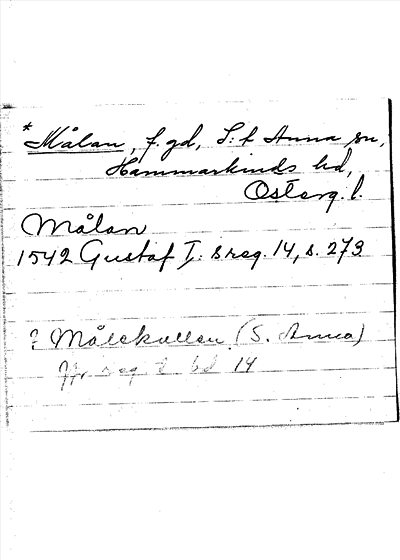 *Målan, f. gd, S:t Anna sn,
Hammarkinds hd,
Österg. l.
Målan
1542 Gustaf I: s reg. 14, s. 273
? Målekullen (S. Anna)
Jfr reg t. bd 14